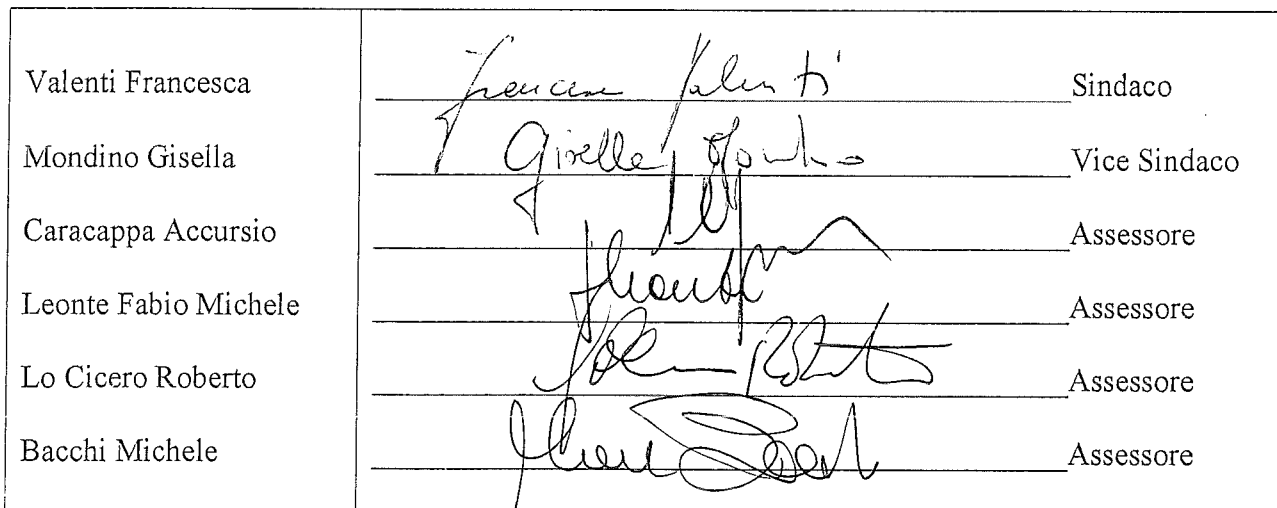 Valenti Francesca Francesca Valenti Sindaco
Mondino Gisella Gisella Mondino Vice Sindaco
Caracappa Accursio Assessore
Leonte Fabio Michele Assessore
Lo Cicero Roberto Assessore
Bacchi Michele Assessore